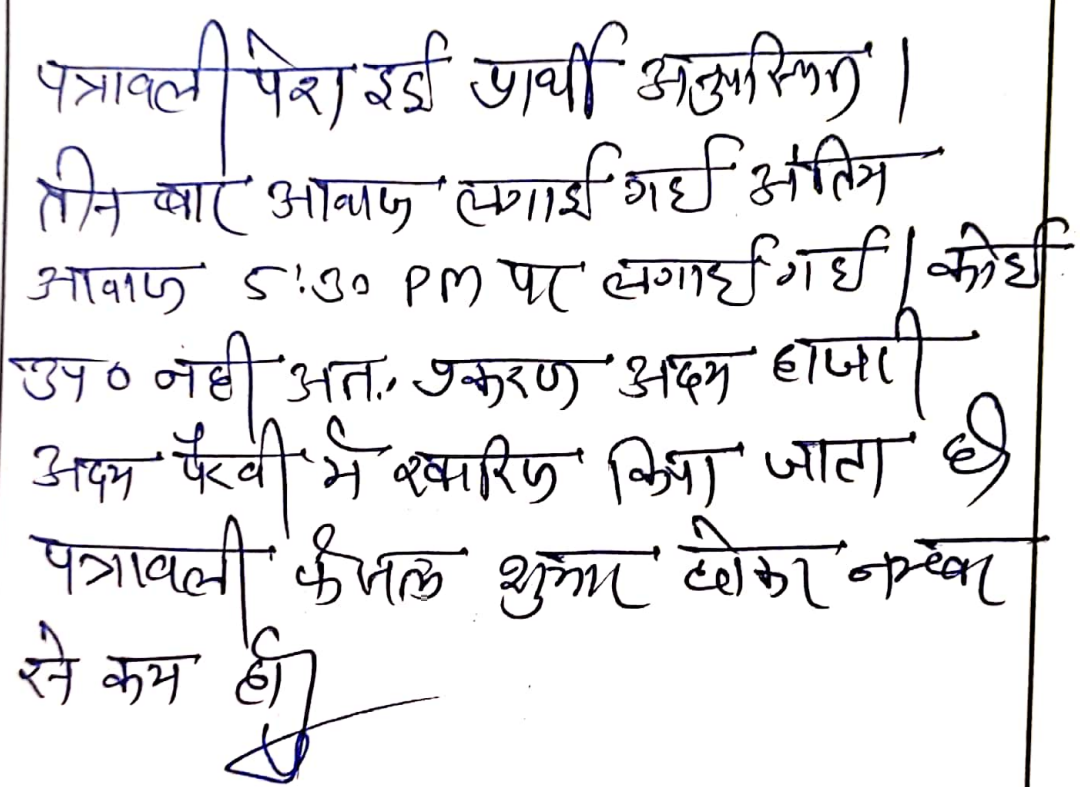 पत्रावली पेश हुई प्रार्थी अनुपस्थित ।
तीन बार आवाज लगाई गई अंतिम
आवाज 5:30 PM पर लगाई गई । कोई
उप० नही अतः प्रकरण अदम हाजरी
अदम पैरवी में खारिज किया जाता है
पत्रावली फैसल शुमार होकर नम्बर
से कम हो